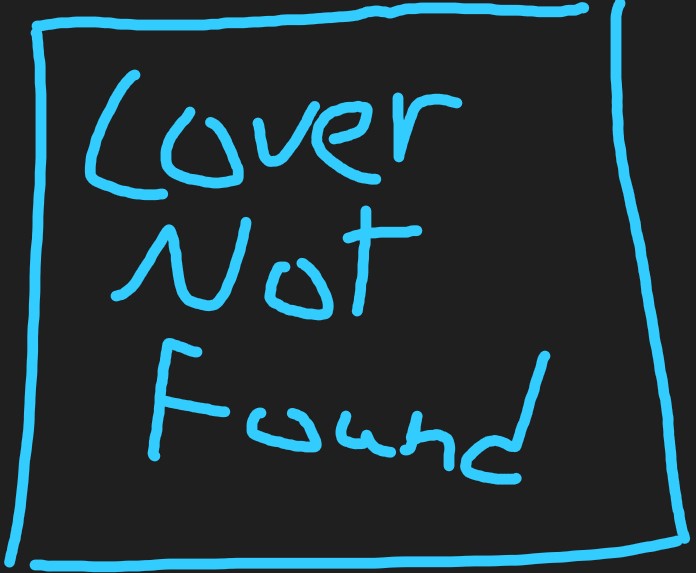 Cover
Not
Found